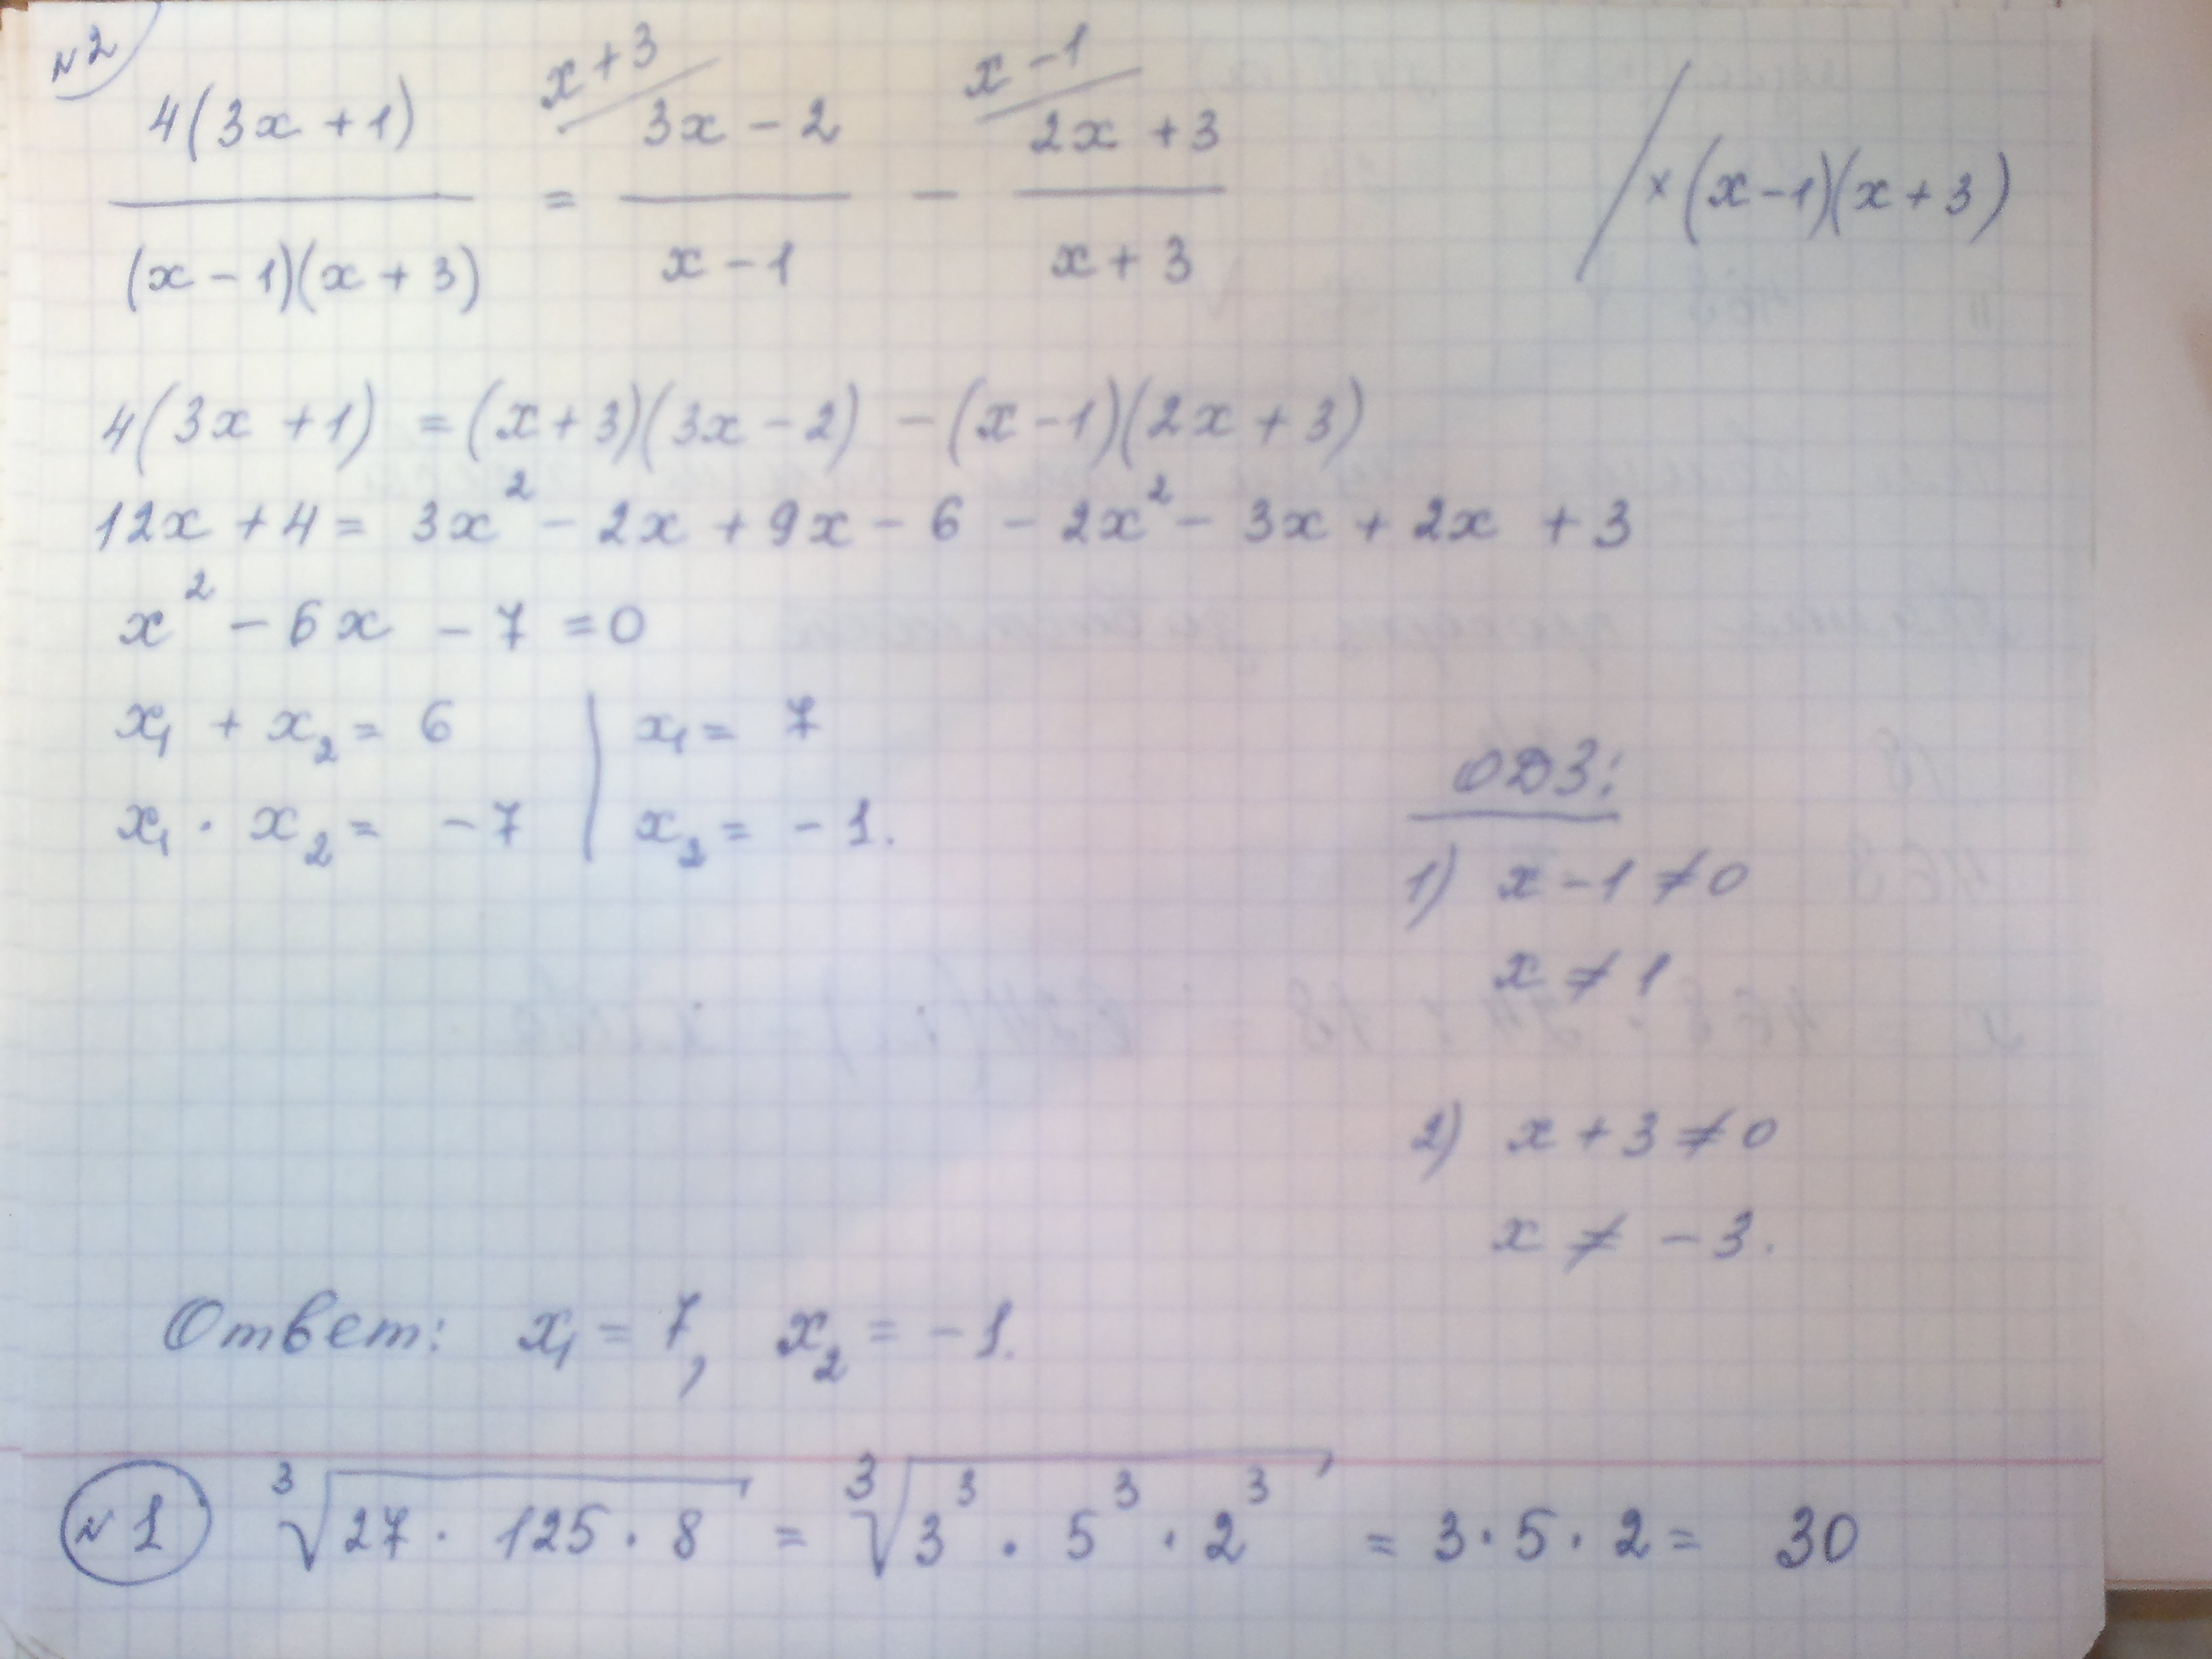 N2
x+3 x-1
4(3x+1) / (x-1)(x+3) = 3x-2 / x-1 - 2x+3 / x+3 / × (x-1)(x+3)
4(3x+1) = (x+3)(3x-2) - (x-1)(2x+3)
12x+4 = 3x² - 2x + 9x - 6 - 2x² - 3x + 2x + 3
x² - 6x - 7 = 0
x₁ + x₂ = 6 | x₁ = 7
x₁ · x₂ = -7 | x₂ = -1.
ОДЗ:
1) x-1≠0
x≠1
2) x+3≠0
x ≠ -3.
Ответ: x₁ = 7, x₂ = -1.
N1 ∛(27 · 125 · 8) = ∛(3³ · 5³ · 2³) = 3·5·2 = 30